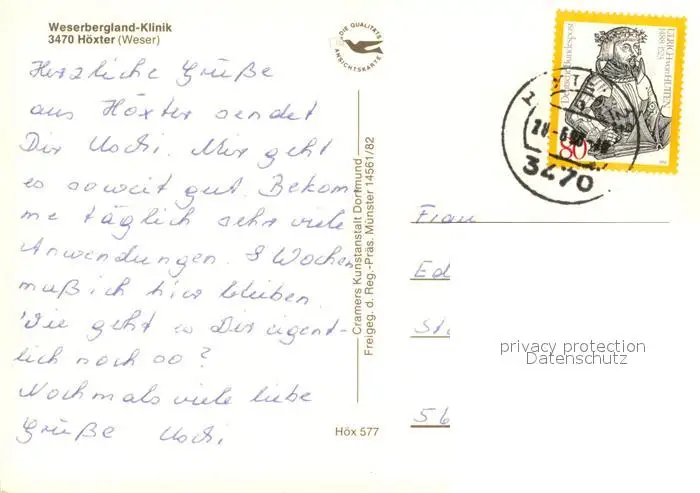 Weserbergland-Klinik
3470 Höxter (Weser)
DIE QUALITÄTS
ANSICHTSKARTE
Herzliche Grüße
aus Höxter sendet
Dir Uschi. Mir geht
es soweit gut. Bekom-
me täglich sehr viele
Anwendungen. 8 Wochen
muß ich hier bleiben.
Wie geht es Dir eigent-
lich noch so?
Nochmals viele liebe
Grüße Uschi
Cramers Kunstanstalt Dortmund
Freigeg. d. Reg.-Präs. Münster 14561/82
Höx 577
Deutsche Bundespost
ULRICH von HUTTEN
1488-1523
80
3470
Frau
Ed
Sta
56
privacy protection
Datenschutz